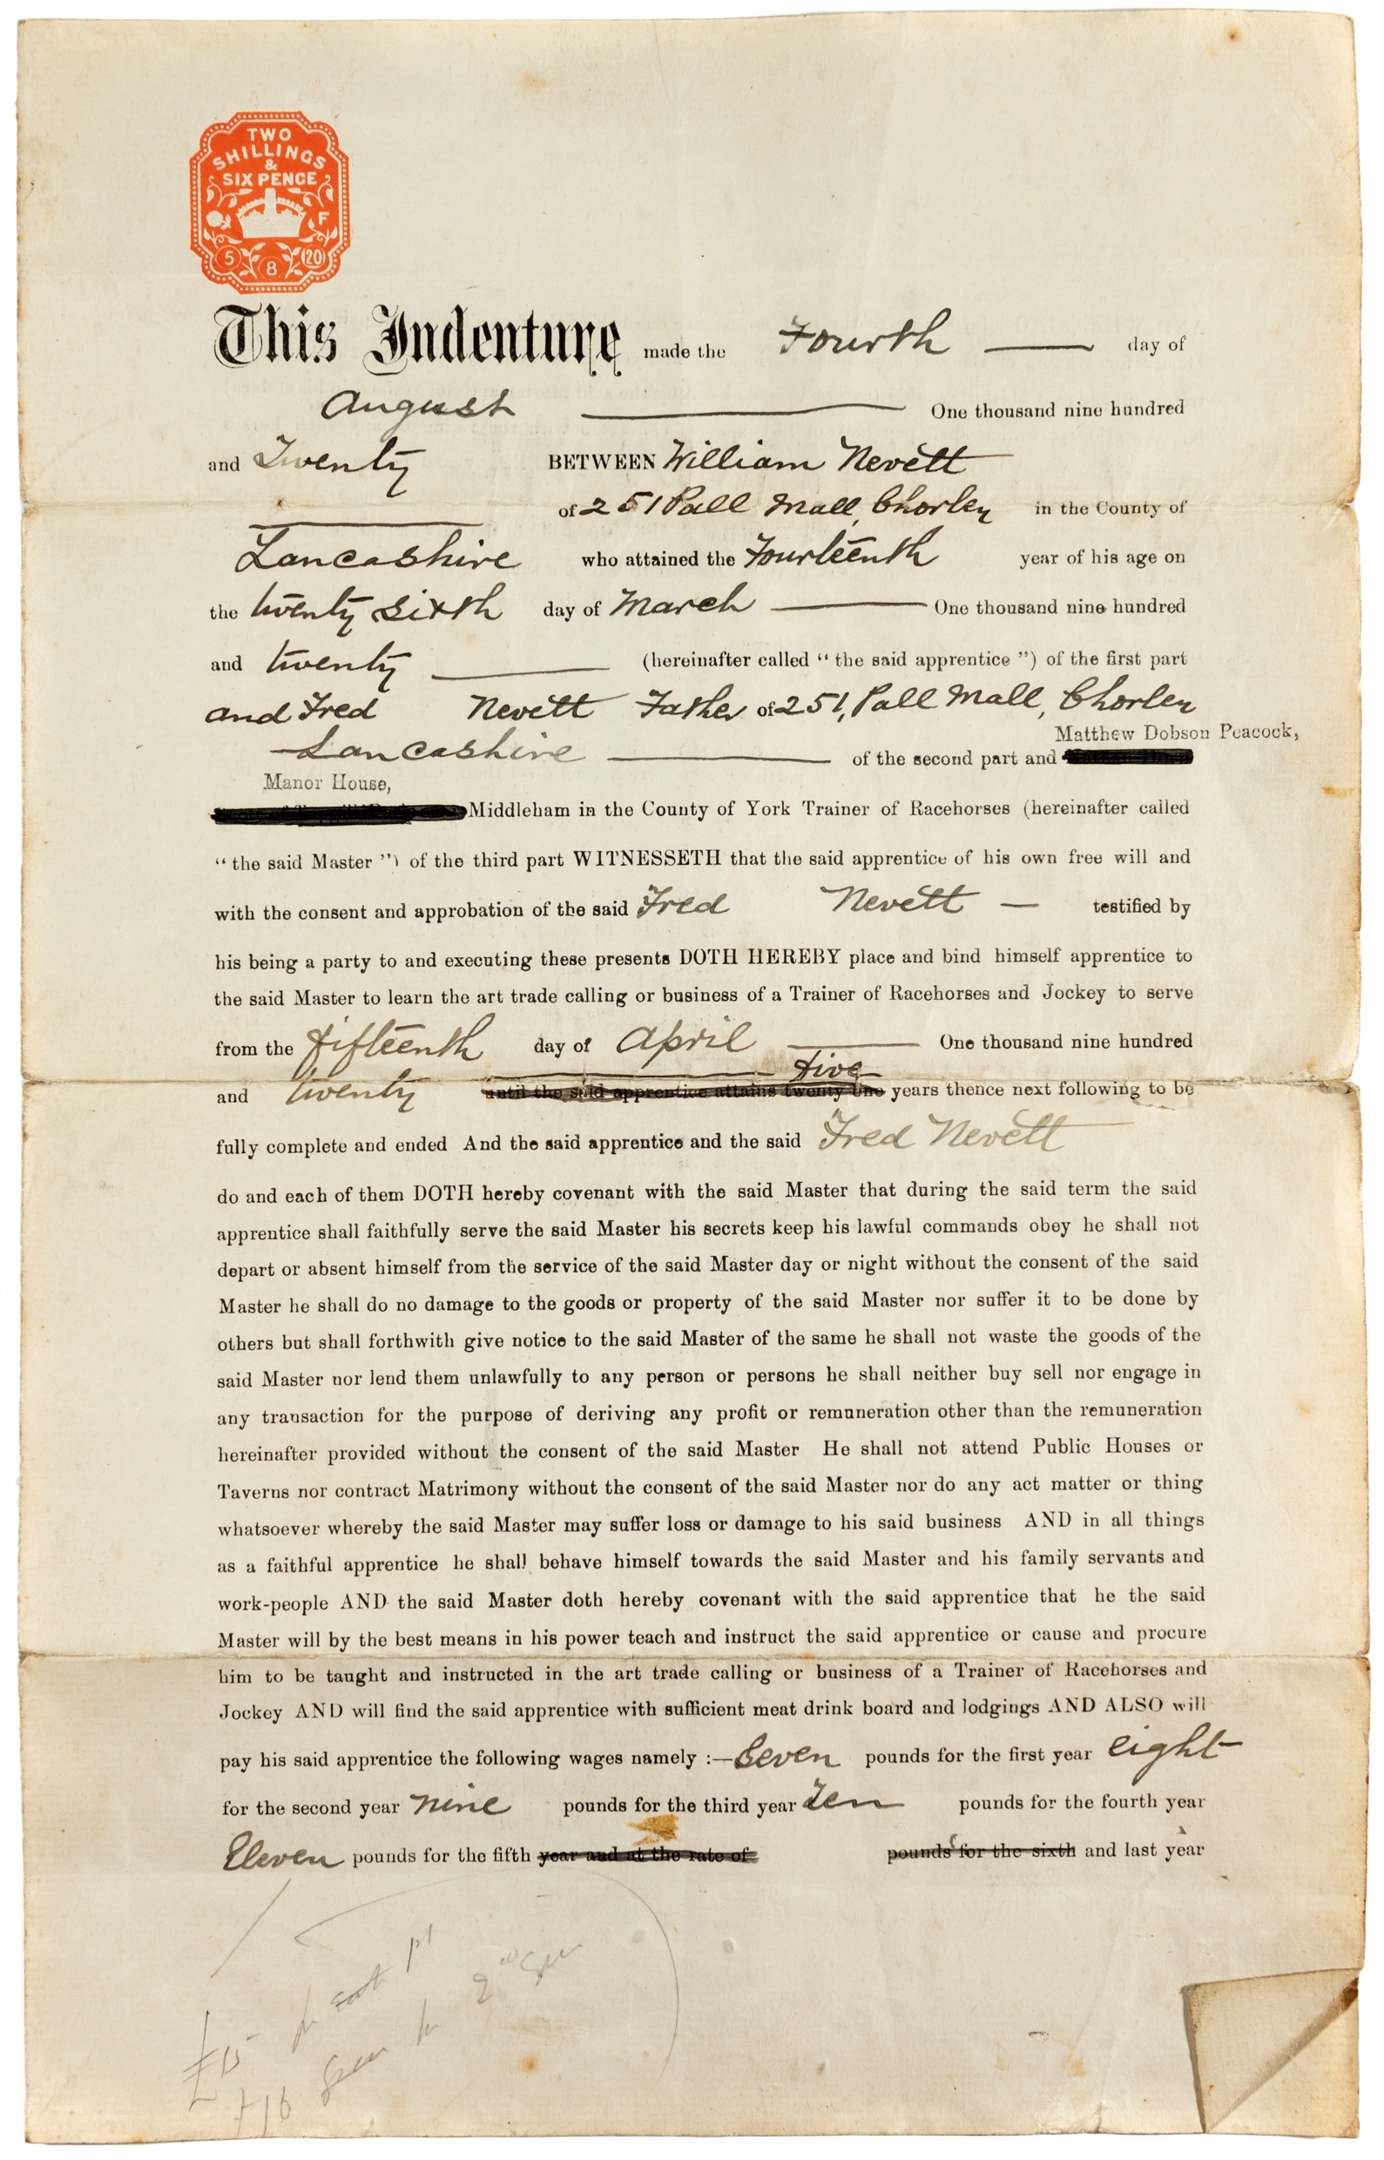 TWO
SHILLINGS
&
SIX PENCE
F
5 8 20
This Indenture made the Fourth day of
August One thousand nine hundred
and Twenty BETWEEN William Nevett
of 251 Pall Mall, Chorley in the County of
Lancashire who attained the Fourteenth year of his age on
the twenty sixth day of March One thousand nine hundred
and twenty (hereinafter called “ the said apprentice ”) of the first part
and Fred Nevett Father of 251, Pall Mall, Chorley
Matthew Dobson Peacock,
Lancashire of the second part and
Manor House,
Middleham in the County of York Trainer of Racehorses (hereinafter called
“ the said Master ”) of the third part WITNESSETH that the said apprentice of his own free will and
with the consent and approbation of the said Fred Nevett — testified by
his being a party to and executing these presents DOTH HEREBY place and bind himself apprentice to
the said Master to learn the art trade calling or business of a Trainer of Racehorses and Jockey to serve
from the fifteenth day of April One thousand nine hundred
five
and twenty until the said apprentice attains twenty one years thence next following to be
fully complete and ended And the said apprentice and the said Fred Nevett
do and each of them DOTH hereby covenant with the said Master that during the said term the said
apprentice shall faithfully serve the said Master his secrets keep his lawful commands obey he shall not
depart or absent himself from the service of the said Master day or night without the consent of the said
Master he shall do no damage to the goods or property of the said Master nor suffer it to be done by
others but shall forthwith give notice to the said Master of the same he shall not waste the goods of the
said Master nor lend them unlawfully to any person or persons he shall neither buy sell nor engage in
any transaction for the purpose of deriving any profit or remuneration other than the remuneration
hereinafter provided without the consent of the said Master He shall not attend Public Houses or
Taverns nor contract Matrimony without the consent of the said Master nor do any act matter or thing
whatsoever whereby the said Master may suffer loss or damage to his said business AND in all things
as a faithful apprentice he shall behave himself towards the said Master and his family servants and
work-people AND the said Master doth hereby covenant with the said apprentice that he the said
Master will by the best means in his power teach and instruct the said apprentice or cause and procure
him to be taught and instructed in the art trade calling or business of a Trainer of Racehorses and
Jockey AND will find the said apprentice with sufficient meat drink board and lodgings AND ALSO will
pay his said apprentice the following wages namely :—Seven pounds for the first year eight
for the second year nine pounds for the third year Ten pounds for the fourth year
Eleven pounds for the fifth year and at the rate of pounds for the sixth and last year
£15
£16